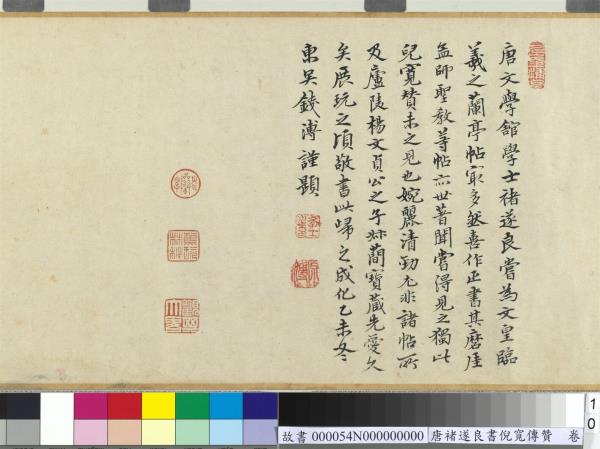 唐文學館學士褚遂良嘗為文皇臨
羲之蘭亭帖最多然喜作正書其磨厓
孟師聖教等帖亦世著聞嘗得見之獨此
兒寬贊未之見也婉麗清勁尤非諸帖所
及廬陵楊文貞公之子叔簡寶藏先愛久
矣展玩之頃敬書此歸之成化乙未冬
東吳錢溥謹題
故書 000054N000000000 唐褚遂良書倪寬傳贊 卷
10